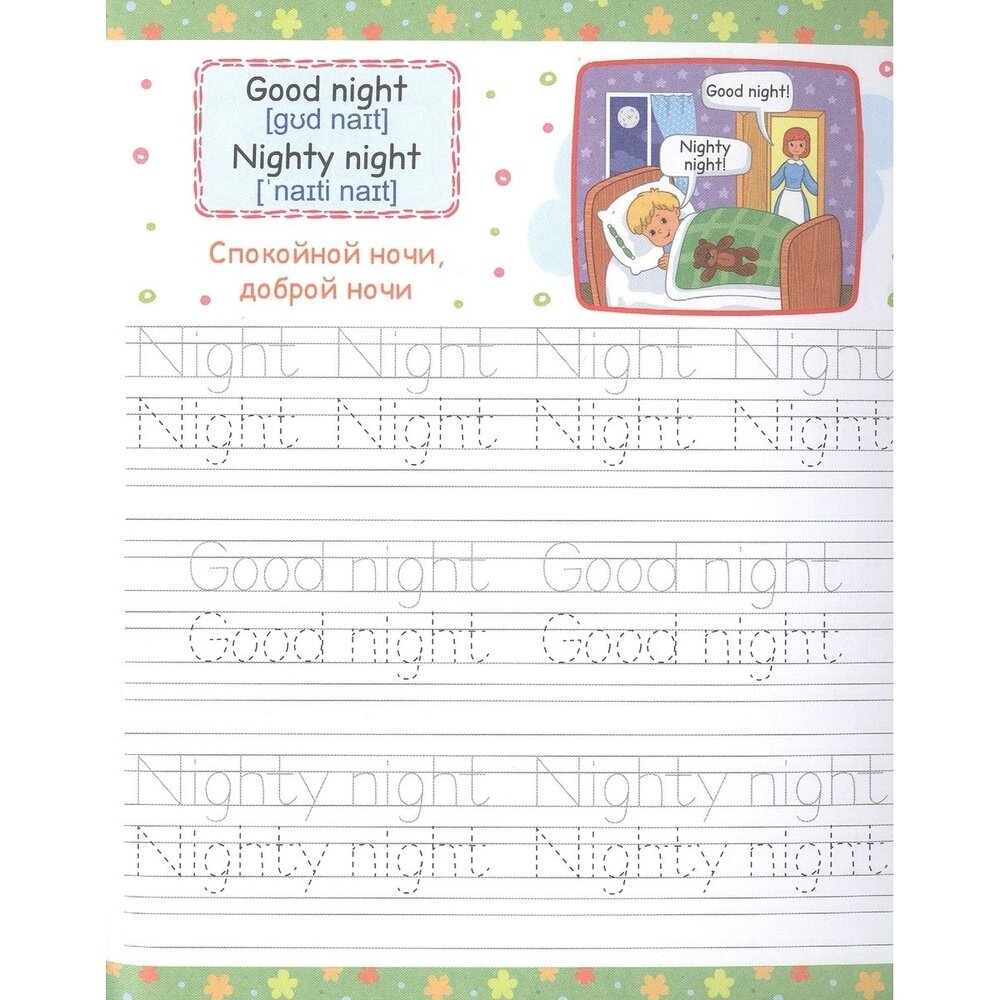 Good night
[gʊd naɪt]
Nighty night
[ˈnaɪti naɪt]
Спокойной ночи,
доброй ночи
Good night!
Nighty
night!
Night Night Night Night
Night Night Night Night
Good night Good night
Good night Good night
Nighty night Nighty night
Nighty night Nighty night